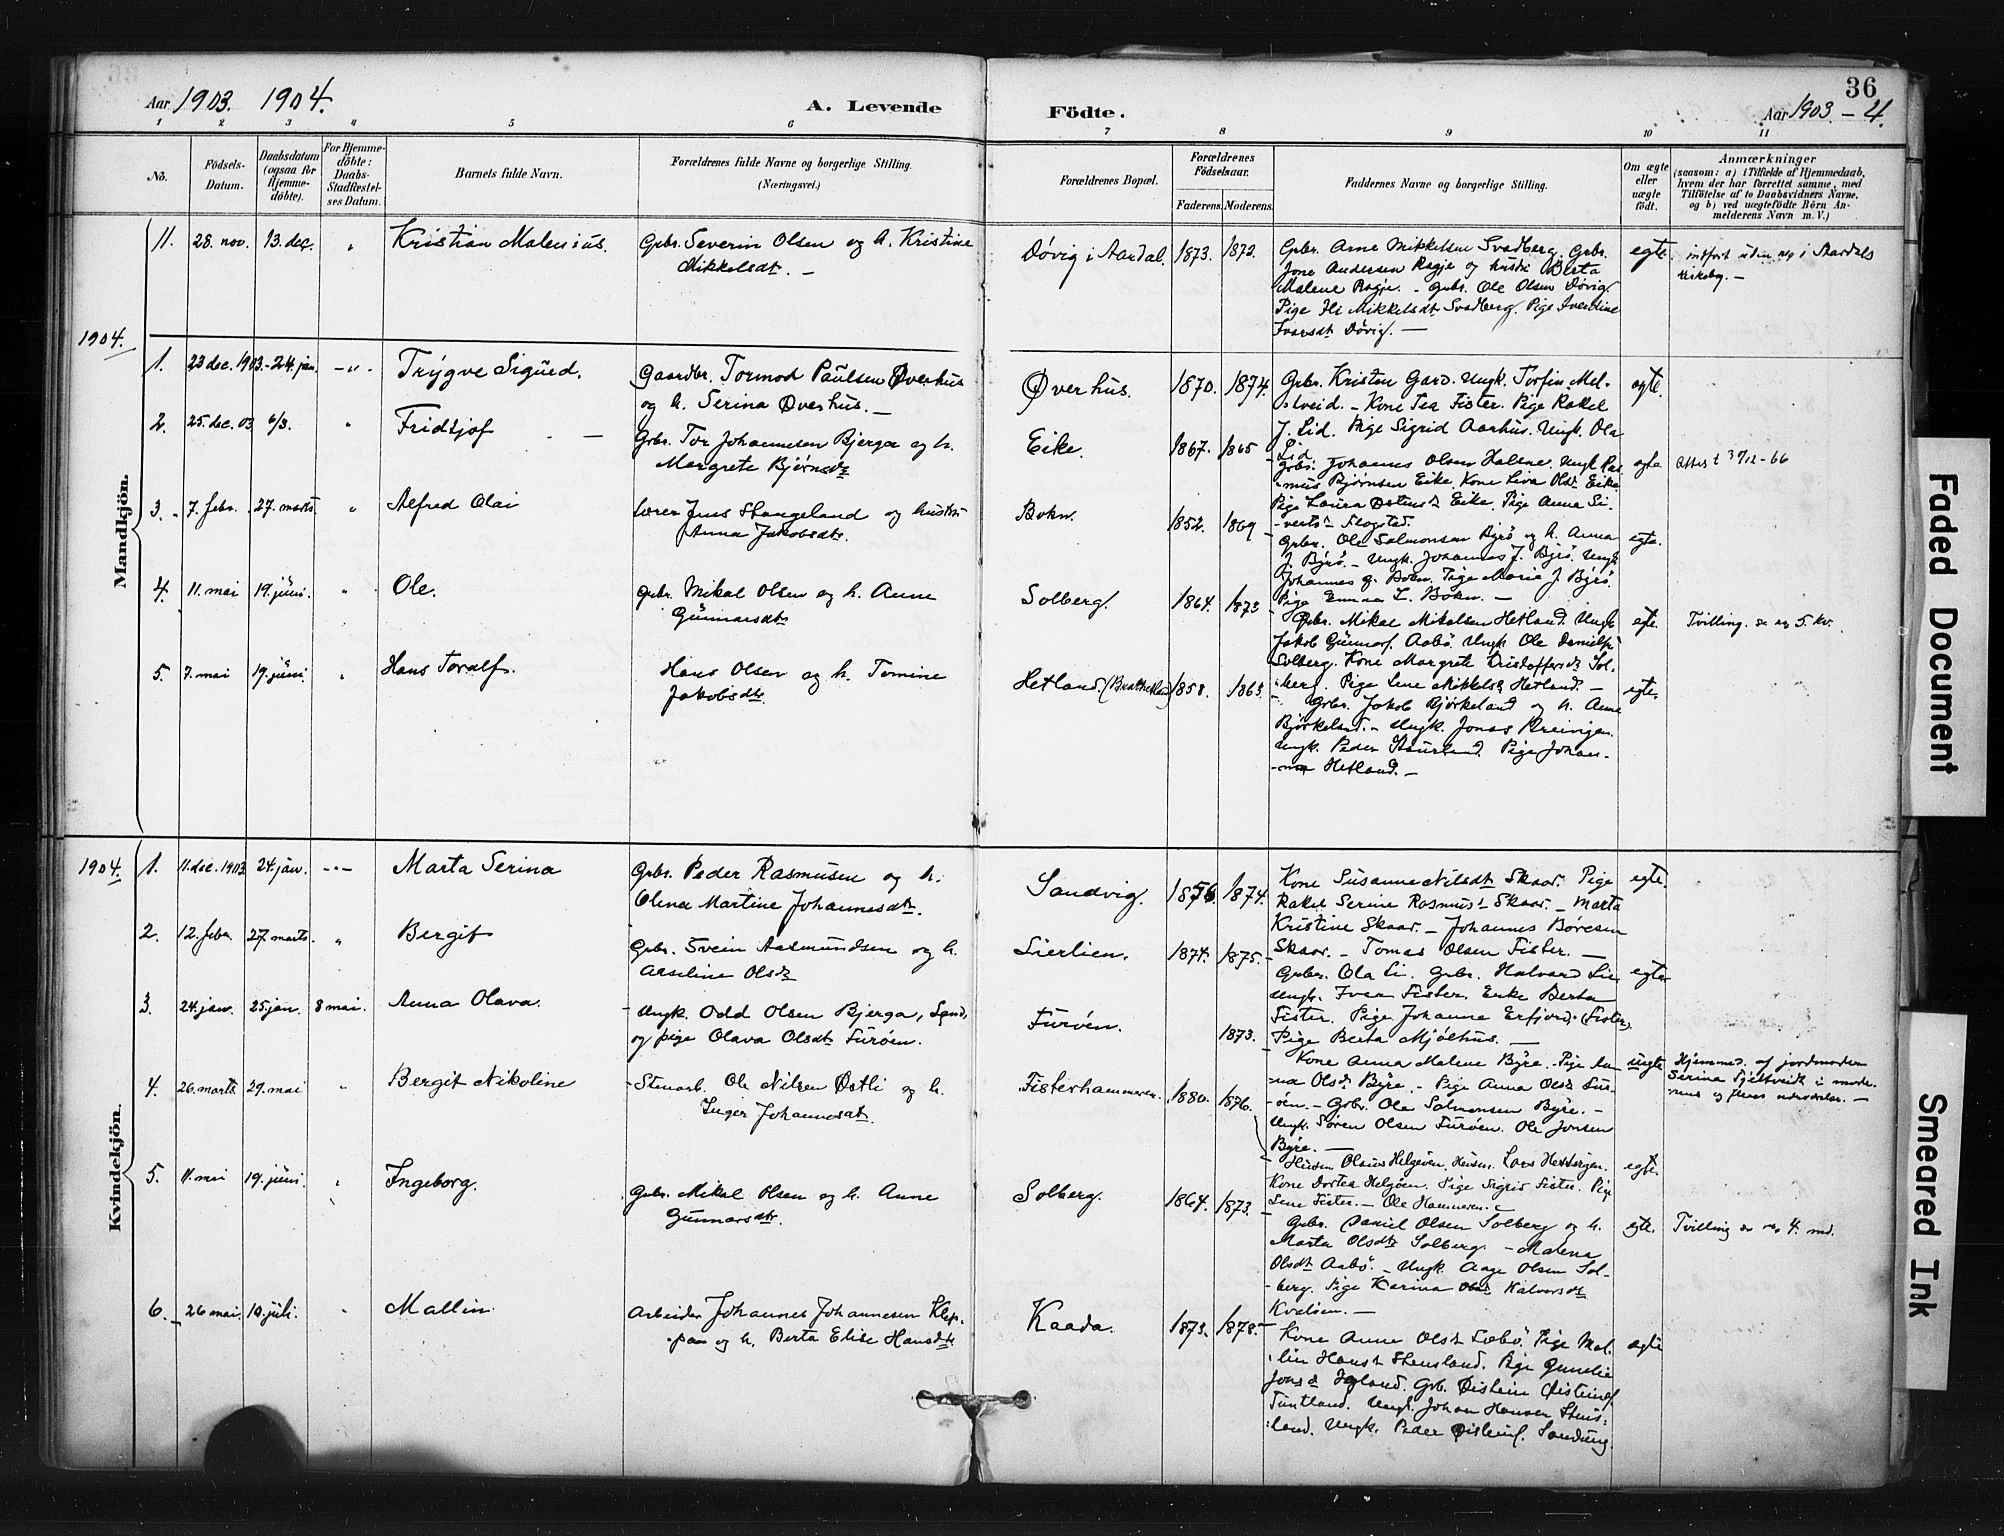 36
Aar 1903. 1904.
A. Levende
Födte.
Aar 1903 - 4.
1 2 3 4 5 6 7 8 9 10 11
No.
Födsels-
Datum.
Daabsdatum
(ogsaa for
Hjemme-
döbte).
For Hjemme-
döbte:
Daabs-
Stadfæstel-
ses Datum.
Barnets fulde Navn.
Forældrenes fulde Navne og borgerlige Stilling.
(Næringsvei.)
Forældrenes Bopæl.
Forældrenes
Födselsaar.
Faderens. Moderens.
Faddernes Navne og borgerlige Stilling.
Om ægte
eller
uægte
födt.
Anmærkninger
(saasom: a) i Tilfælde af Hjemmedaab,
hvem der har forrettet samme, med
Tilföielse af to Daabsvidners Navne,
og b) ved uægtefödte Börn An-
melderens Navn m. V.)
Mandkjön.
11. 28. nov. 13. dec. " Kristian Malenius. Gbr. Severin Olsen og h. Kristine
Mikkelsdt. —
Døvig i Aardal. 1873. 1872.
Gbr. Arne Mikkelsen Svadberg. Gbr.
Jone Andersen Ragje og hustr. Berta
Malene Ragje. - Gbr. Ole Olsen Døvig.
Pige Mikkelsdt Svadberg. Pige Iverdine
Ivarsdt Døvig. —
egte. indført uden no i Aardals
kirkebog. —
1904.
1. 23 dec. 1903. - 24. jan. - " - Trygve Sigurd. Gaardbr. Tormod Paulsen Øverhus
og h. Serina Øverhus. —
Øverhus. 1870. 1874.
Gbr. Kristen Gard. Ungk. Torfin Mel-
stveid. - Kone Tea Fister. Pige Rakel
J. Lid. Pige Sigrid Aarhus. Ungk. Ola
Lid.
egte.
2. 25. dec. 03 6/3. " Fridtjof - — Gbr. Tor Johannesen Bjerga og h.
Margrete Bjørnsdt
Eike. 1867. 1865
Gbr. Johannes Olsen Halene. Ungk Ras-
mus Bjørnsen Eike. Kone Liva Olsdt Eike
Pige Laura Østensdt Eike. Pige Anna Si-
vertsdt Slogsted.
egte. Attest
3. 7. febr. 27. marts. " Alfred Olai lærer Jens Stangeland og hustru
Anna Jakobsdt.
Bokn. 1852. 1869
Gbr. Ole Salmonsen Byrø og h. Anna
J. Byrø. - Ungk. Johannes J. Byrø. Ungk
Johannes G. Bokn. Pige Marie J. Byrø.
Pige Emma L. Bokn. —
egte.
4. 11. mai 19. juni. " Ole. Gbr. Mikal Olsen og h. Anne
Gunnarsdt
Solberg. 1864. 1873
Gbr. Mikal Mikalsen Hetland. Ungk
Jakob Gunnars. Aabø. Ungk Ole Danielsen
Solberg. Kone Margrete Kristoffersdt Sol-
berg. Pige Lene Mikkelsdt Hetland. —
egte. Tvilling. se no 5. kv.
5. 7. mai 19. juni. " Hans Toralf. Hans Olsen og h. Tomine
Jakobsdt.
Hetland. (Bratthetland) 1858. 1863.
Gbr. Jakob Bjørkeland og h. Anne
Bjørkeland. - Ungk. Jonas Preivigen.
Ungk. Peder Staurland. Pige Johan-
na Hetland. —
egte.
Kvindekjön.
1904.
1. 11. dec. 1903. 24. jan. - " - Marta Serina Gbr. Peder Rasmusen og h.
Olena Martine Johannesdt.
Sandvig. 1856. 1874.
Kone Susanne Nilsdt Skaar. Pige
Rakel Serine Rasmusdt Skaar. - Marta
Kristine Skaar. - Johannes Børesen
Skaar. - Tomas Olsen Fister. —
egte.
2. 12. febr. 27. marts. " Bergit Gbr. Svein Aasmundsen og h.
Aaseline Olsdt
Lierlien. 1874. 1875.
Gbr. Ola Li. Gbr. Halvard Lie
Ungk. Ivar Fister. Enke Berta
Fister. Pige Johanne Erfjord (Fister).
Pige Berta Mjølhus. —
egte
3. 24. jan. 25. jan. 8 mai. Anna Olava. Ungk. Odd Olsen Bjerga, Sand,
og pige Olava Olsdt Furøen.
Furøen. 1873.
Kone Anna Malene Byre. Pige An-
na Olsdt Byre. - Pige Anna Olsdt Fur-
øen. - Gbr. Ole Salmonsen Byre. -
Ungk. Søren Olsen Furøen. Ole Jonsen
Byre. —
uegte Hjemmed. af jordmoderen
Serina Tjeltveidt i mode-
rens og fleres nærværelse. —
4. 26. marts. 29. mai " Bergit Nikoline Stenarb. Ole Nilsen Østli og h.
Inger Johannesdt.
Fisterhammeren. 1880. 1876.
Husm Olaus Helgøen. Husm. Lars Hetlesgen.
Kone Dortea Helgøen. Pige Sigrid Fister. Pige
Lene Fister. - Ole Hammeren. -
egte.
5. 11. mai 19. juni. " Ingeborg. Gbr. Mikal Olsen og h. Anne
Gunnarsdt.
Solberg. 1864. 1873.
Gbr. Daniel Olsen Solberg og h.
Marta Olsdt Solberg. - Malena
Olsdt Aabø. - Ungk. Aage Olsen Sol-
berg. Pige Karina Halvorsdt
Kvaløen. —
egte. Tvilling se no 4. md.
6. 26 mai. 10. juli. " Mallin Arbeider Johannes Johannesen Klep-
pa og h. Berta Elise Hansdt.
Kaada. 1873. 1878.
Kone Anne OlsdtLøbø. Pige Mal-
lin Hansdt Stensland. Pige Gunelie
Jonsdt Igland. Gbr. Øistein Øisteins.
Tuntland. Ungk. Johan Hansen Stens-
land. Ungk. Peder Øisteins. Sandung.
egte
Faded Document
Smeared Ink